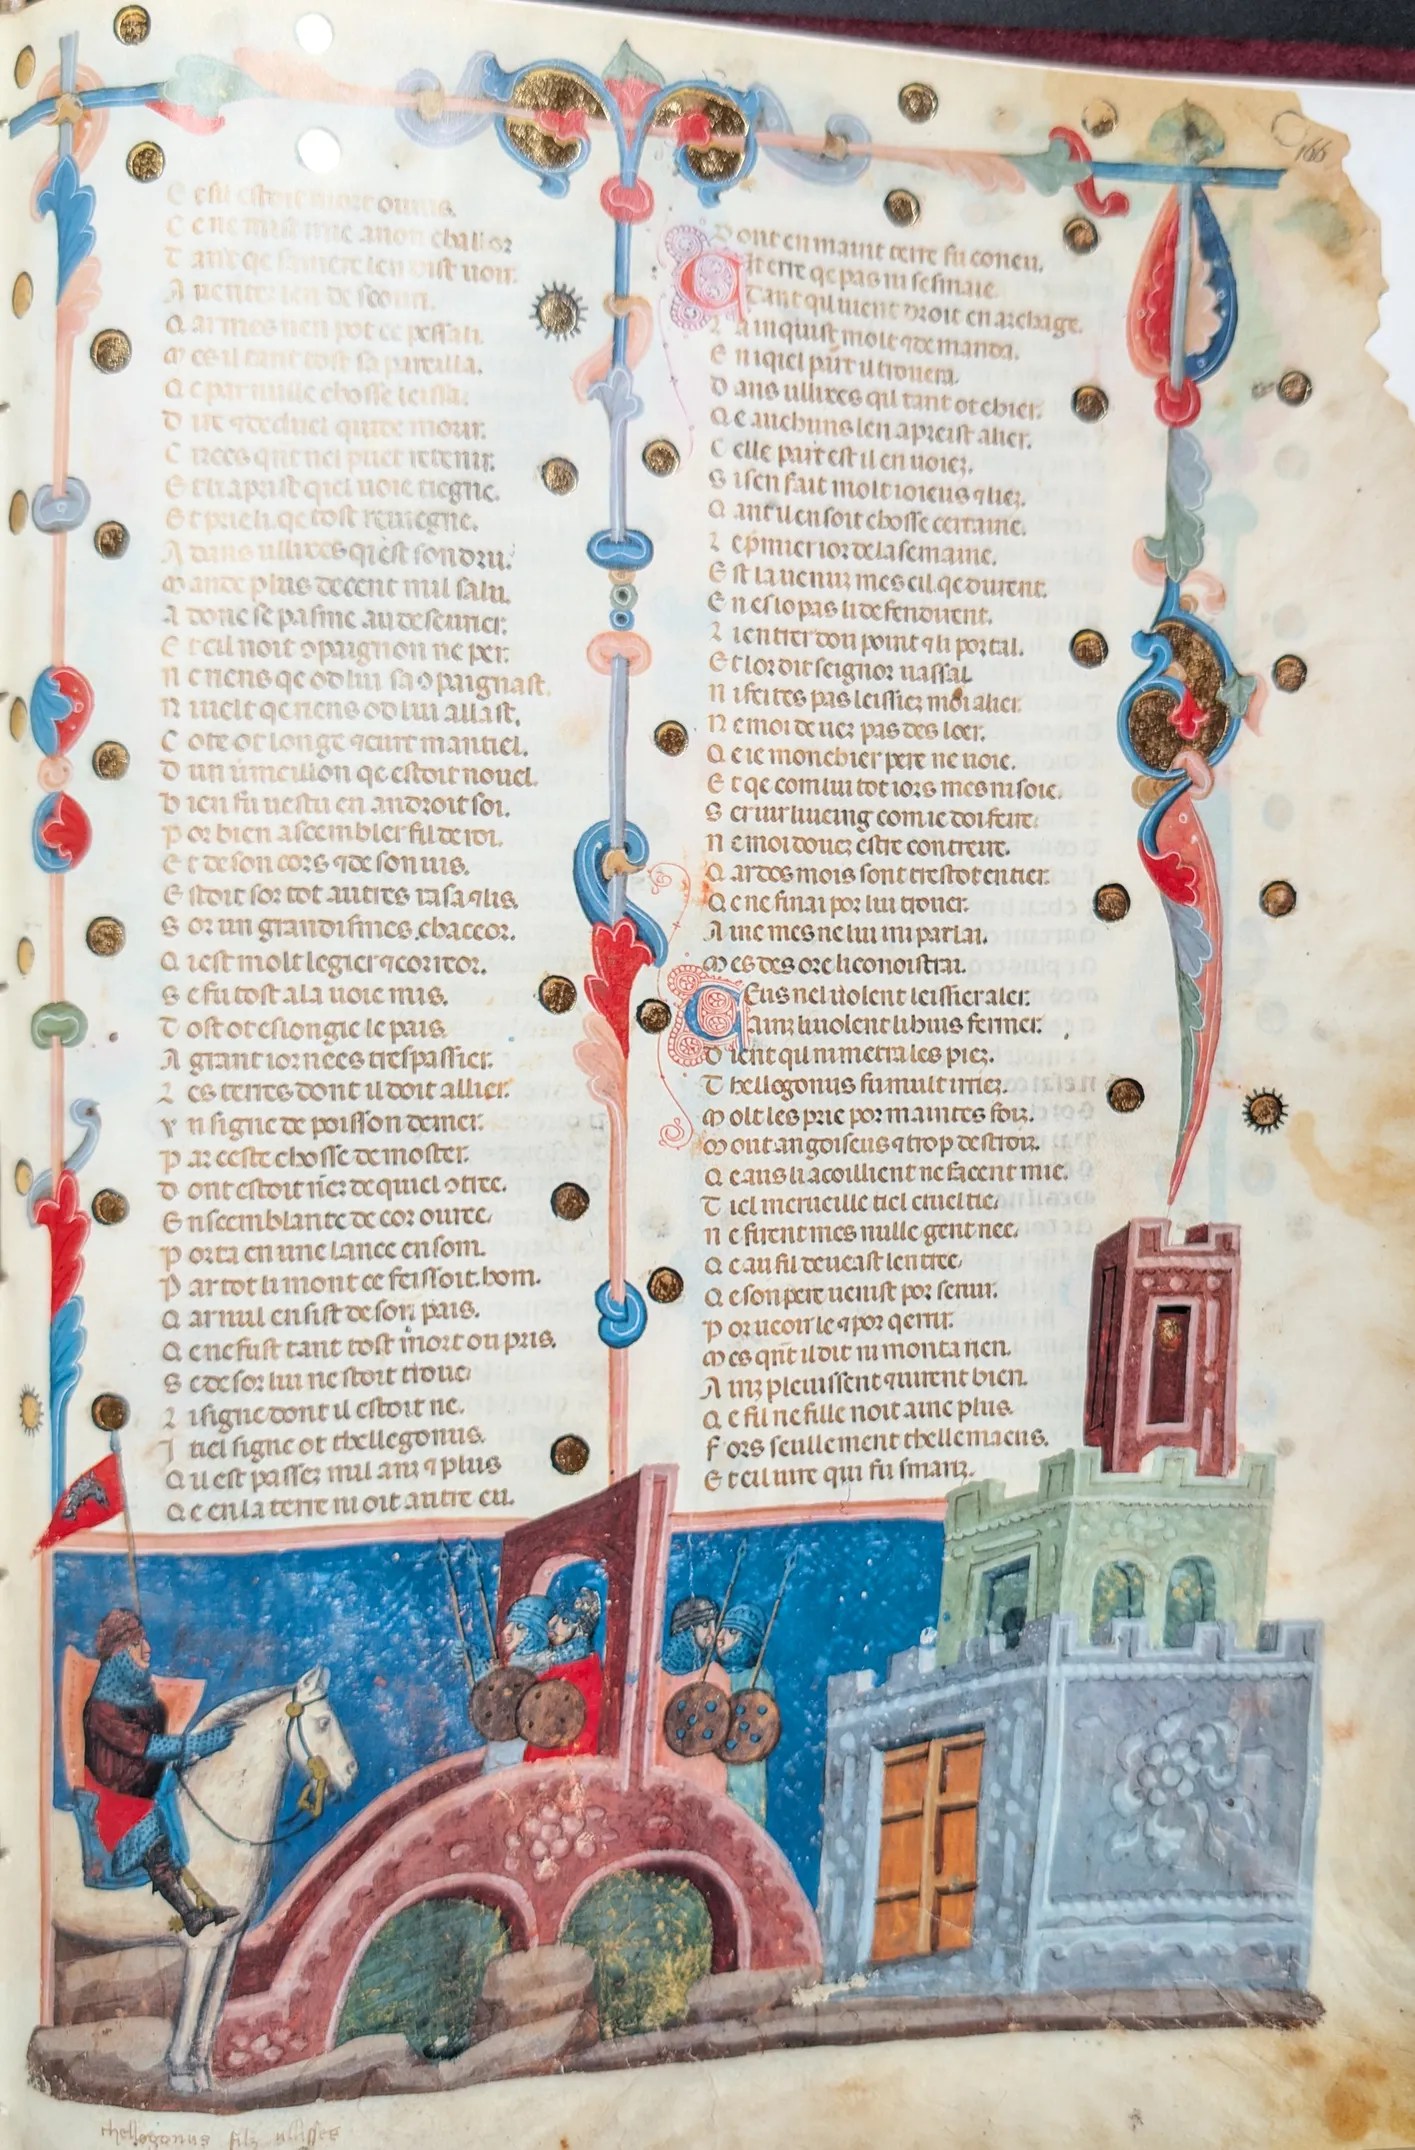 166
E
C e ne mist mie a non chalior
T ant qe sa mere len oist uoir.
A uenter len de
Q ar mes nen pot ce
M es il tant tost sa pareilla.
Q e par nulle chosse leissa.
D ire qe de duel quide morir.
C irces qnt nel puet retenir.
E t li aprist qiel uoie tiegne.
E t prie li qe tost reuiegne.
A dans ullixes qi est son dru.
M ande plus de cent mil salu.
A donc se pasme au deseurier.
E t cil noit ɔpaignon ne per.
N e riens qe od lui sa ɔpaignast.
N i uelt qe riens od lui allast.
C ote ot longe ⁊ curt mantiel.
D un uimeillon qe estoit nouel.
B ien fu uestu en androit soi.
P or bien asembler fil de roi.
E t de son cors ⁊ de son uis.
E stoit sor tot autres
S or un grandismes chaceor.
Q i est molt legier ⁊ coritor.
S e fu tost a la uoie mis.
T ost ot esiongie le pais.
A grant iornees trespassier.
L es terres dont il doit allier.
V n signe de poisson de mer.
P ar ceste chosse demostrer.
D ont estoit nez de quiel ɔtree.
E n semblante de cor ouree.
P orta en une lance en som.
P ar tot li mont ce feissoit hom.
Q ar nul ensist de son pais.
Q e ne fust tant tost mort ou pris.
S e desor lui ne stoit troue
L i signe dont il estoit ne.
I tiel signe ot thellegonus.
Q u est passez mil anz ⁊ plus
Q e en la terre ni oit autre eu.
D ont en maint terre fu coneu.
C It erre qe pas ni sesmaie.
Tant qu uient droit en archage.
L a inquist molt ⁊ demanda.
E n iqiel part il trouera.
D ans ullixes qil tant ot chier.
Q e auchuns len apreist alier.
C elle part est il en uoiez.
S i sen fait molt ioieus ⁊ liez.
Q ant il en soit chosse certaine.
L e pmier ior de la semaine.
E st la uenuz mes cil qe durent.
E n es lo pas li defendirent.
L i entrer dou point ⁊ li portal.
E t lor dit seignor uassal.
N i feites pas leissiez moi alier.
N e moi deuez pas desloer.
Q e ie mon chier pere ne uoie.
E t qe com lui tot iors mes ni soie.
S eruir liueing com ie doi feire.
N e moi douez estre contreire.
Q ar dos mois sont trestot entier.
Q e ne finai por lui trouer.
A ine mes ne lui ni parlai.
M es des ore li conoistrai.
C Eus nel uolent leissier aler.
Ainz li uolent li huis fermer.
D ient qu ni metra les piez.
T hellegonus fu mult irriez.
M olt les prie por maintes foiz.
M out angoiseus ⁊ trop destroiz.
Q e aus li acoillient ne facent mie.
T iel merueille tiel crueltie.
N e firent mes nulle gent nee.
Q e au fil deueast lentree.
Q e son pere uenist por seruir.
P or ueoir le ⁊ por qerrir.
M es qnt il dit ni monta rien.
A inz pleuissent ⁊ iurent bien.
Q e fil ne fille noit ainc plus.
F ors seullement thellemacus.
E t cil iure qui fu smariz.
thellegonus filz ulixes